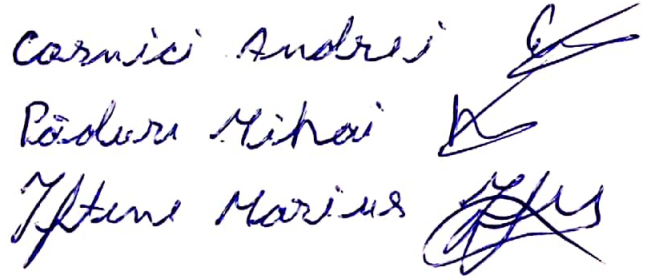 Cosnici Andrei
Păduru Mihai
Iftene Marius